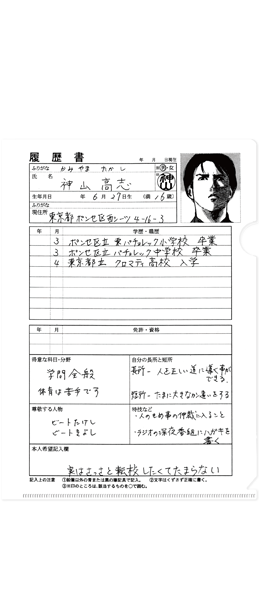 履歴書
年 月 日現在
ふりがな かみやま たかし
氏名 神山 高志
神山
生年月日 年 6月 27日生 (満 16歳)
ふりがな
現住所 東京都ポンセ区西シーツ 4-16-3
年 月 学歴・職歴
3 ポンセ区立 東バチョレック小学校 卒業
3 ポンセ区立 バチョレック中学校 卒業
4 東京都立 クロマティ高校 入学
年 月 免許・資格
得意な科目・分野
学問全般
体育は苦手です
自分の長所と短所
長所－ 人を正しい道に導く事ができる
短所－ たまに大きなかん違いをする
尊敬する人物
ビートたけし
ビートきよし
特技など
・人のもめ事の仲裁に入ること
・ラジオの深夜番組にハガキを書く
本人希望記入欄
実はさっさと転校したくてたまらない
記入上の注意 ①鉛筆以外の青または黒の筆記具で記入。 ②文字はくずさず正確に書く。
③※印のところは、該当するものを○で囲む。